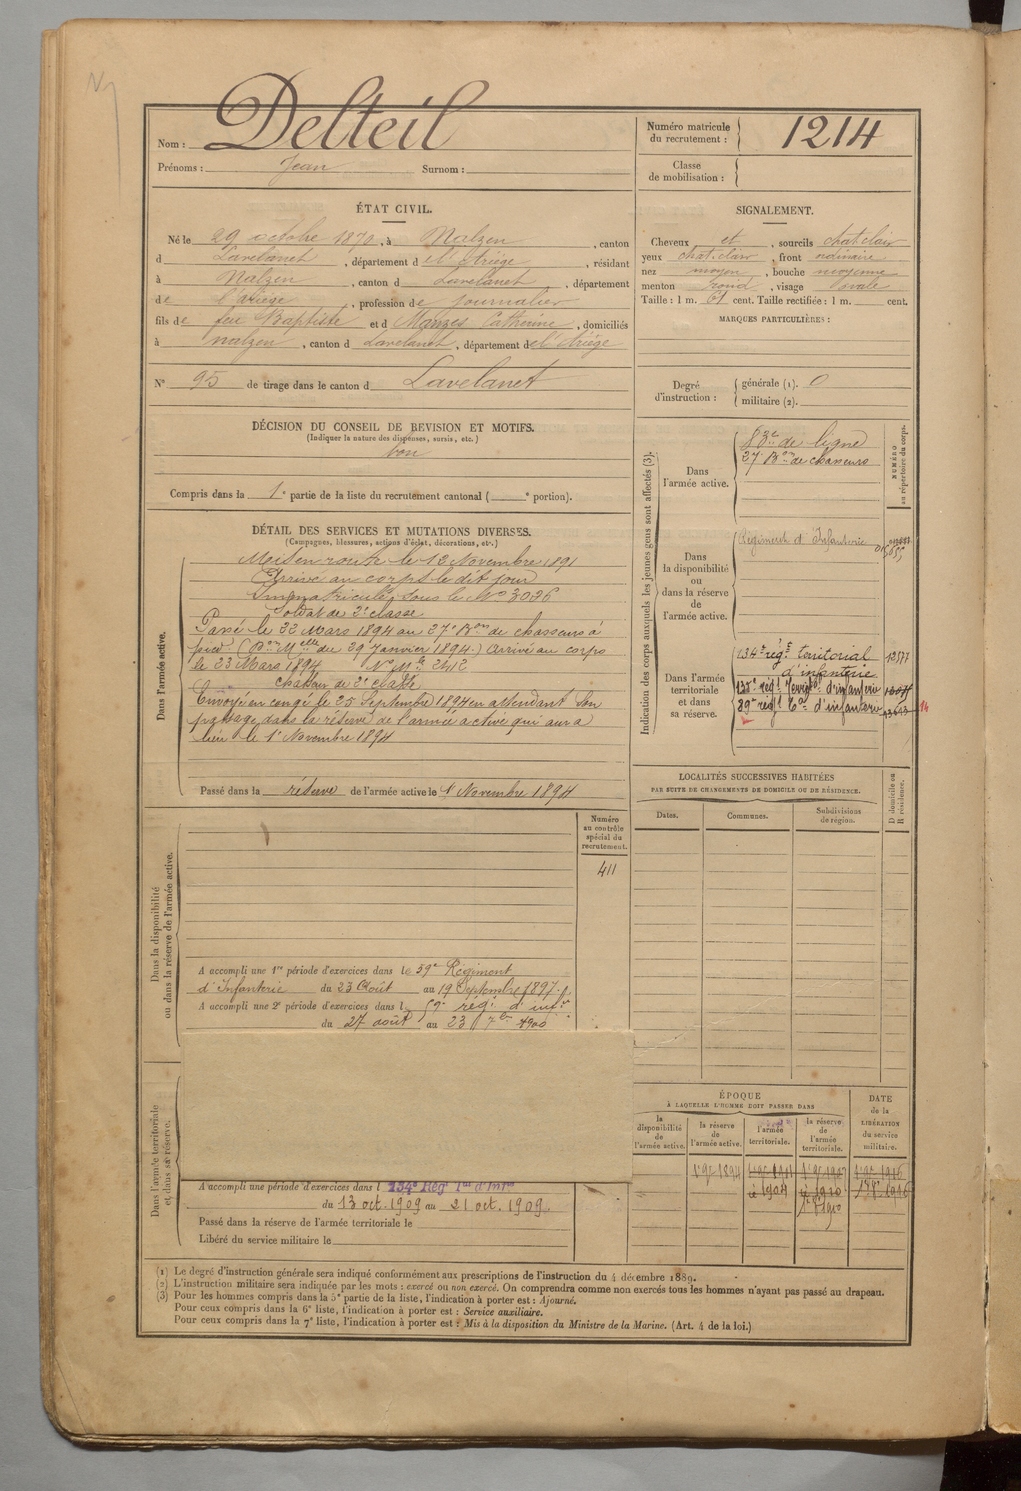 Nom : Delteil
Prénoms : Jean Surnom :
Numéro matricule du recrutement : 1214
Classe de mobilisation :
ÉTAT CIVIL.
Né le 29 octobre 1870, à Nalzen, canton
d Lavelanet, département de l'Ariège, résidant
à Nalzen, canton d Lavelanet, département
de l'Ariège, profession de journalier
fils de feu Baptiste et d Manzes Catherine, domiciliés
à Nalzen, canton d Lavelanet, département de l'Ariège
N° 95 de tirage dans le canton d Lavelanet
SIGNALEMENT.
Cheveux et, sourcils chat. clair
yeux chat. clair, front ordinaire
nez moyen, bouche moyenne
menton rond, visage ovale
Taille : 1 m. 61 cent. Taille rectifiée : 1 m. cent.
MARQUES PARTICULIÈRES :
Degré d'instruction : générale (1). 0
militaire (2).
DÉCISION DU CONSEIL DE REVISION ET MOTIFS.
(Indiquer la nature des dispenses, sursis, etc.)
bon
Compris dans la 1e partie de la liste du recrutement cantonal ( e portion).
DÉTAIL DES SERVICES ET MUTATIONS DIVERSES.
(Campagnes, blessures, actions d'éclat, décorations, etc.)
Dans l'armée active.
Mis en route le 12 Novembre 1891
Arrivé au corps le dit jour
Immatriculé sous le No 3026
Soldat de 2e classe
Passé le 22 Mars 1894 au 27e Bon de chasseurs à
pied (Don Melle du 29 Janvier 1894) Arrivé au corps
le 23 Mars 1894 No Mle 2412
chasseur de 2e classe
Envoyé en congé le 25 Septembre 1894 en attendant son
passage dans la réserve de l'armée active qui aura
lieu le 1er Novembre 1894
Passé dans la réserve de l'armée active le 1er Novembre 1894
Indication des corps auxquels les jeunes gens sont affectés (3).
NUMÉRO au répertoire du corps.
Dans l'armée active.
83e de ligne
27e Bon de chasseurs
Dans la disponibilité ou dans la réserve de l'armée active.
Régiment d'Infanterie
Dans l'armée territoriale et dans sa réserve.
134e régt territorial d'infanterie 12577
135e régt Terrial d'infanterie
89e régt Tal d'infanterie
LOCALITÉS SUCCESSIVES HABITÉES
PAR SUITE DE CHANGEMENTS DE DOMICILE OU DE RÉSIDENCE.
D domicile ou R résidence.
Dates. Communes. Subdivisions de région.
Dans la disponibilité ou dans la réserve de l'armée active.
Numéro au contrôle spécial du recrutement.
411
A accompli une 1re période d'exercices dans le 59e Régiment
d'Infanterie du 23 Août au 19 Septembre 1897
A accompli une 2e période d'exercices dans l 59e régt d'infie
du 27 août au 23 7bre 1900
Dans l'armée territoriale et dans sa réserve.
A accompli une période d'exercices dans l 134e Régt Tal d'Infie
du 13 oct. 1909 au 21 oct. 1909.
Passé dans la réserve de l'armée territoriale le
Libéré du service militaire le
ÉPOQUE
À LAQUELLE L'HOMME DOIT PASSER DANS
la disponibilité de l'armée active.
la réserve de l'armée active.
l'armée territoriale.
la réserve de l'armée territoriale.
DATE de la LIBÉRATION du service militaire.
1er 9e 1894
(1) Le degré d'instruction générale sera indiqué conformément aux prescriptions de l'instruction du 4 décembre 1889.
(2) L'instruction militaire sera indiquée par les mots : exercé ou non exercé. On comprendra comme non exercés tous les hommes n'ayant pas passé au drapeau.
(3) Pour les hommes compris dans la 5e partie de la liste, l'indication à porter est : Ajourné.
Pour ceux compris dans la 6e liste, l'indication à porter est : Service auxiliaire.
Pour ceux compris dans la 7e liste, l'indication à porter est : Mis à la disposition du Ministre de la Marine. (Art. 4 de la loi.)